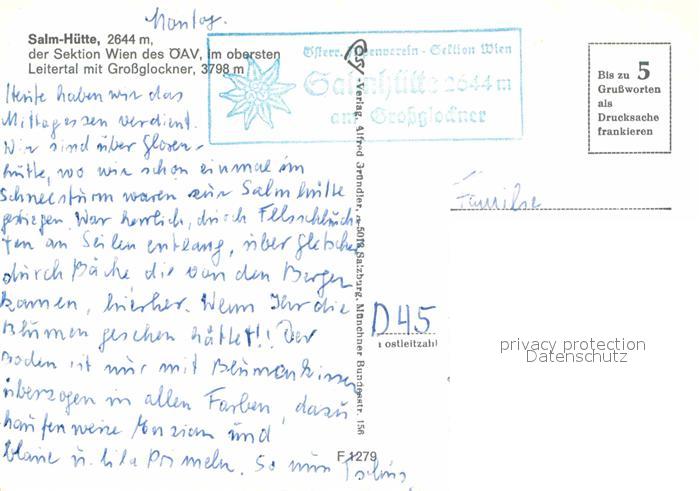 Montag.
Salm-Hütte, 2644 m,
der Sektion Wien des ÖAV, im obersten
Leitertal mit Großglockner, 3798 m
Österr. Alpenverein - Sektion Wien
Salmhütte 2644 m
am Großglockner
Bis zu 5
Grußworten
als
Drucksache
frankieren
Heute haben wir das
Mittagessen verdient.
Wir sind über
hütte, wo wir schon einmal im
Schneesturm waren zur Salmhütte
gestiegen. War herrlich, durch Felsschluch-
ten an Seilen entlang, über Gletscher
durch Bäche die von den Bergen
kamen, hierher. Wenn Ihr die
Blumen gesehen hättet!! Der
Boden ist nur mit Blumenkissen
überzogen in allen Farben, dazu
haufenweise Enzian und
blaue u. lila Primeln. So nun Tschüs
Familie
D 45
Postleitzahl
Verlag Alfred Gründler, 5013 Salzburg, Münchner Bundesstr. 156
F 1279
privacy protection
Datenschutz